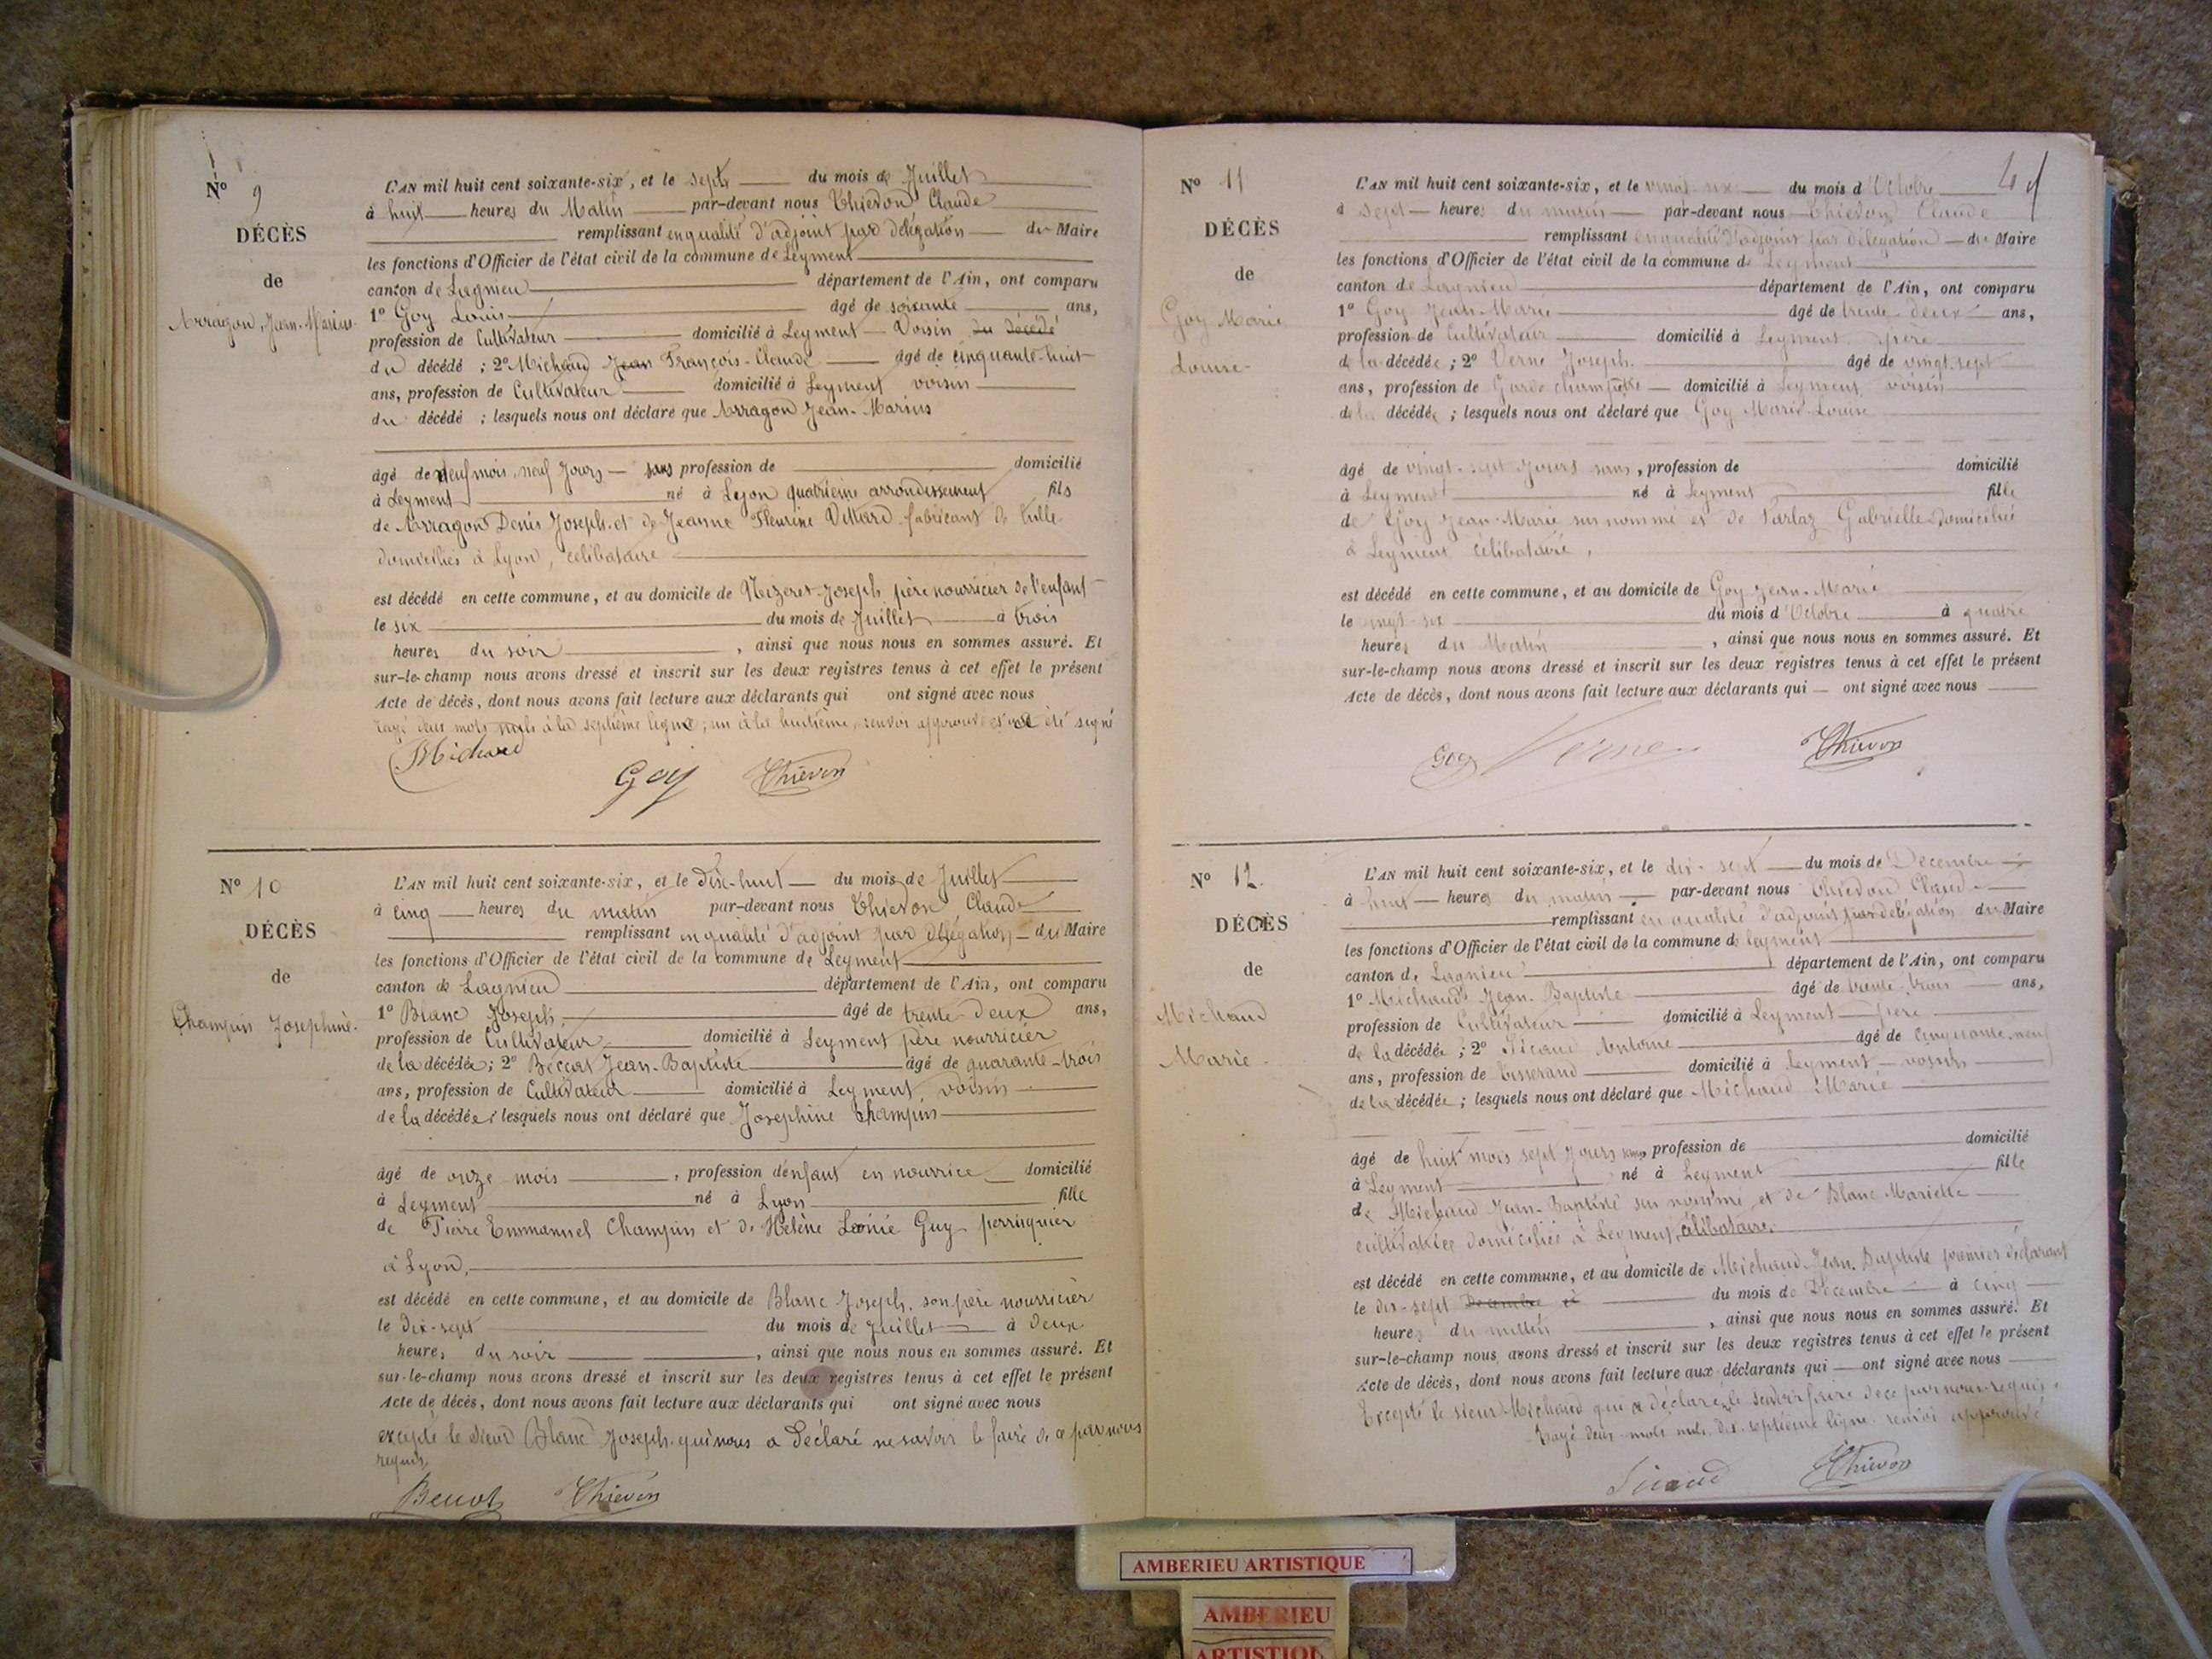 Nº 9
DÉCÈS
de
Arragon, Jean-Marius.
L'AN mil huit cent soixante-six, et le sept du mois de Juillet
à huit heures du Matin par-devant nous Thievon Claude
remplissant en qualité d'adjoint par délégation du Maire
les fonctions d'Officier de l'état civil de la commune de Leyment
canton de Lagnieu département de l'Ain, ont comparu
1º Goy Louis âgé de soixante ans,
profession de Cultivateur domicilié à Leyment Voisin du décédé
du décédé ; 2º Michaud Jean François-Claude âgé de cinquante-huit
ans, profession de Cultivateur domicilié à Leyment voisin
du décédé ; lesquels nous ont déclaré que Arragon Jean-Marius
âgé de neuf mois, neuf jours sans profession de domicilié
à Leyment né à Lyon quatrième arrondissement fils
de Arragon Denis Joseph et de Jeanne Fleurine Villard fabricant de tulle
domiciliés à Lyon, célibataire
est décédé en cette commune, et au domicile de Neizeret Joseph père nourricier de l'enfant
le six du mois de Juillet à trois
heures du soir , ainsi que nous nous en sommes assuré. Et
sur-le-champ nous avons dressé et inscrit sur les deux registres tenus à cet effet le présent
Acte de décès, dont nous avons fait lecture aux déclarants qui ont signé avec nous
rayé deux mots nuls à la septième ligne ; un à la huitième, renvoi approuvé et a été signé
Michaud
Goy Thievon
Nº 10
DÉCÈS
de
Champin Josephine.
L'AN mil huit cent soixante-six, et le dix-huit du mois de Juillet
à cinq heures du matin par-devant nous Thievon Claude
remplissant en qualité d'adjoint par délégation du Maire
les fonctions d'Officier de l'état civil de la commune de Leyment
canton de Lagnieu département de l'Ain, ont comparu
1º Blanc Joseph, âgé de trente-deux ans,
profession de Cultivateur domicilié à Leyment père nourricier
de la décédée ; 2º Jean-Baptiste âgé de quarante-trois
ans, profession de Cultivateur domicilié à Leyment, voisin
de la décédée ; lesquels nous ont déclaré que Josephine Champin
âgé de onze mois , profession d'enfant en nourrice domicilié
à Leyment né à Lyon fille
de Pierre Emmanuel Champin et de Hélène Léonie Guy perruquier
à Lyon,
est décédé en cette commune, et au domicile de Blanc Joseph, son père nourricier
le dix-sept du mois de Juillet à deux
heures du soir , ainsi que nous nous en sommes assuré. Et
sur-le-champ nous avons dressé et inscrit sur les deux registres tenus à cet effet le présent
Acte de décès, dont nous avons fait lecture aux déclarants qui ont signé avec nous
excepté le sieur Blanc Joseph qui nous a déclaré ne savoir le faire de ce par nous
requis,
Thievon
Nº 11
DÉCÈS
de
Goy Marie
Louise
L'AN mil huit cent soixante-six, et le vingt-six du mois d'Octobre
à sept heures du matin par-devant nous Thievon Claude
remplissant en qualité d'adjoint par délégation du Maire
les fonctions d'Officier de l'état civil de la commune de Leyment
canton de Lagnieu département de l'Ain, ont comparu
1º Goy Jean-Marie âgé de trente-deux ans,
profession de Cultivateur domicilié à Leyment père
de la décédée ; 2º Verne Joseph. âgé de vingt-sept
ans, profession de Garde champêtre domicilié à Leyment, voisin
de la décédée ; lesquels nous ont déclaré que Goy Marie-Louise
âgé de vingt-sept jours sans, profession de domicilié
à Leyment né à Leyment fille
de Goy Jean-Marie sus nommé et de Parlaz Gabrielle domiciliés
à Leyment célibataire,
est décédé en cette commune, et au domicile de Goy Jean-Marie
le vingt-six du mois d'Octobre à quatre
heures du Matin , ainsi que nous nous en sommes assuré. Et
sur-le-champ nous avons dressé et inscrit sur les deux registres tenus à cet effet le présent
Acte de décès, dont nous avons fait lecture aux déclarants qui ont signé avec nous
Goy Verne Thievon
Nº 12.
DÉCÈS
de
Michaud
Marie
L'AN mil huit cent soixante-six, et le dix-sept du mois de Décembre
à huit heures du matin par-devant nous Thievon Claude
remplissant en qualité d'adjoint par délégation du Maire
les fonctions d'Officier de l'état civil de la commune de Leyment
canton de Lagnieu département de l'Ain, ont comparu
1º Michaud Jean-Baptiste âgé de trente-trois ans,
profession de Cultivateur domicilié à Leyment père
de la décédée ; 2º Sicaud Antoine âgé de cinquante-neuf
ans, profession de tisserand domicilié à Leyment voisin
de la décédée ; lesquels nous ont déclaré que Michaud Marie
âgé de huit mois sept jours sans profession de domicilié
à Leyment né à Leyment fille
de Michaud Jean-Baptiste sus nommé et de Blanc Mariette
domiciliés à Leyment, célibataire.
est décédé en cette commune, et au domicile de Michaud Jean-Baptiste premier déclarant
le dix-sept Décembre à du mois de Décembre à cinq
heures du matin , ainsi que nous nous en sommes assuré. Et
sur-le-champ nous avons dressé et inscrit sur les deux registres tenus à cet effet le présent
Acte de décès, dont nous avons fait lecture aux déclarants qui ont signé avec nous
Excepté le sieur Michaud qui a déclaré ne le savoir faire de ce par nous requis.
Rayé deux mots nuls dix-septième ligne renvoi approuvé
Sicaud Thievon
AMBERIEU ARTISTIQUE
AMBERIEU
ARTISTIQU